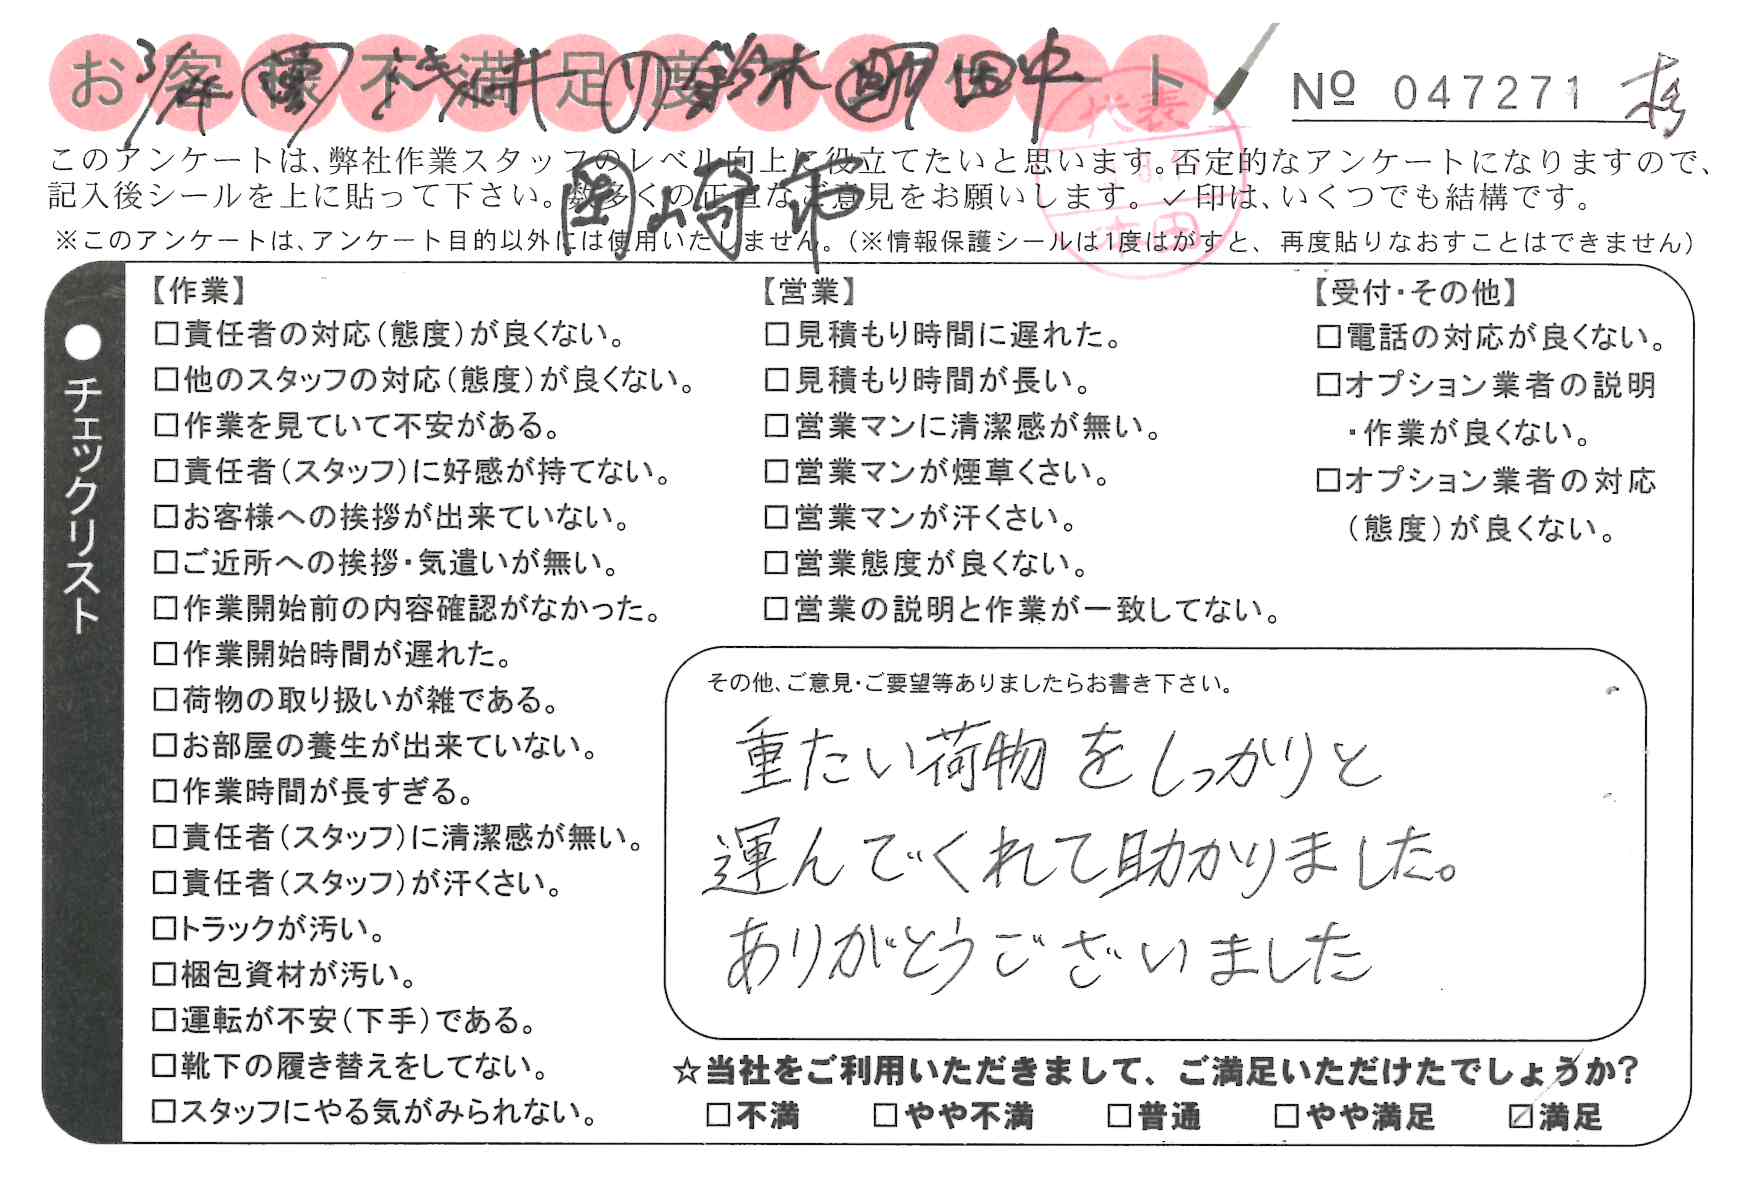 お客様不満足度アンケート
No 047271
このアンケートは、弊社作業スタッフのレベル向上に役立てたいと思います。否定的なアンケートになりますので、
記入後シールを上に貼って下さい。数多くの正直なご意見をお願いします。✓印は、いくつでも結構です。
岡崎市
※このアンケートは、アンケート目的以外には使用いたしません。（※情報保護シールは1度はがすと、再度貼りなおすことはできません）
●チェックリスト
【作業】
□責任者の対応（態度）が良くない。
□他のスタッフの対応（態度）が良くない。
□作業を見ていて不安がある。
□責任者（スタッフ）に好感が持てない。
□お客様への挨拶が出来ていない。
□ご近所への挨拶・気遣いが無い。
□作業開始前の内容確認がなかった。
□作業開始時間が遅れた。
□荷物の取り扱いが雑である。
□お部屋の養生が出来ていない。
□作業時間が長すぎる。
□責任者（スタッフ）に清潔感が無い。
□責任者（スタッフ）が汗くさい。
□トラックが汚い。
□梱包資材が汚い。
□運転が不安（下手）である。
□靴下の履き替えをしてない。
□スタッフにやる気がみられない。
【営業】
□見積もり時間に遅れた。
□見積もり時間が長い。
□営業マンに清潔感が無い。
□営業マンが煙草くさい。
□営業マンが汗くさい。
□営業態度が良くない。
□営業の説明と作業が一致してない。
【受付・その他】
□電話の対応が良くない。
□オプション業者の説明
・作業が良くない。
□オプション業者の対応
（態度）が良くない。
その他、ご意見・ご要望等ありましたらお書き下さい。
重たい荷物をしっかりと
運んでくれて助かりました。
ありがとうございました
☆当社をご利用いただきまして、ご満足いただけたでしょうか?
□不満 □やや不満 □普通 □やや満足 ☑満足